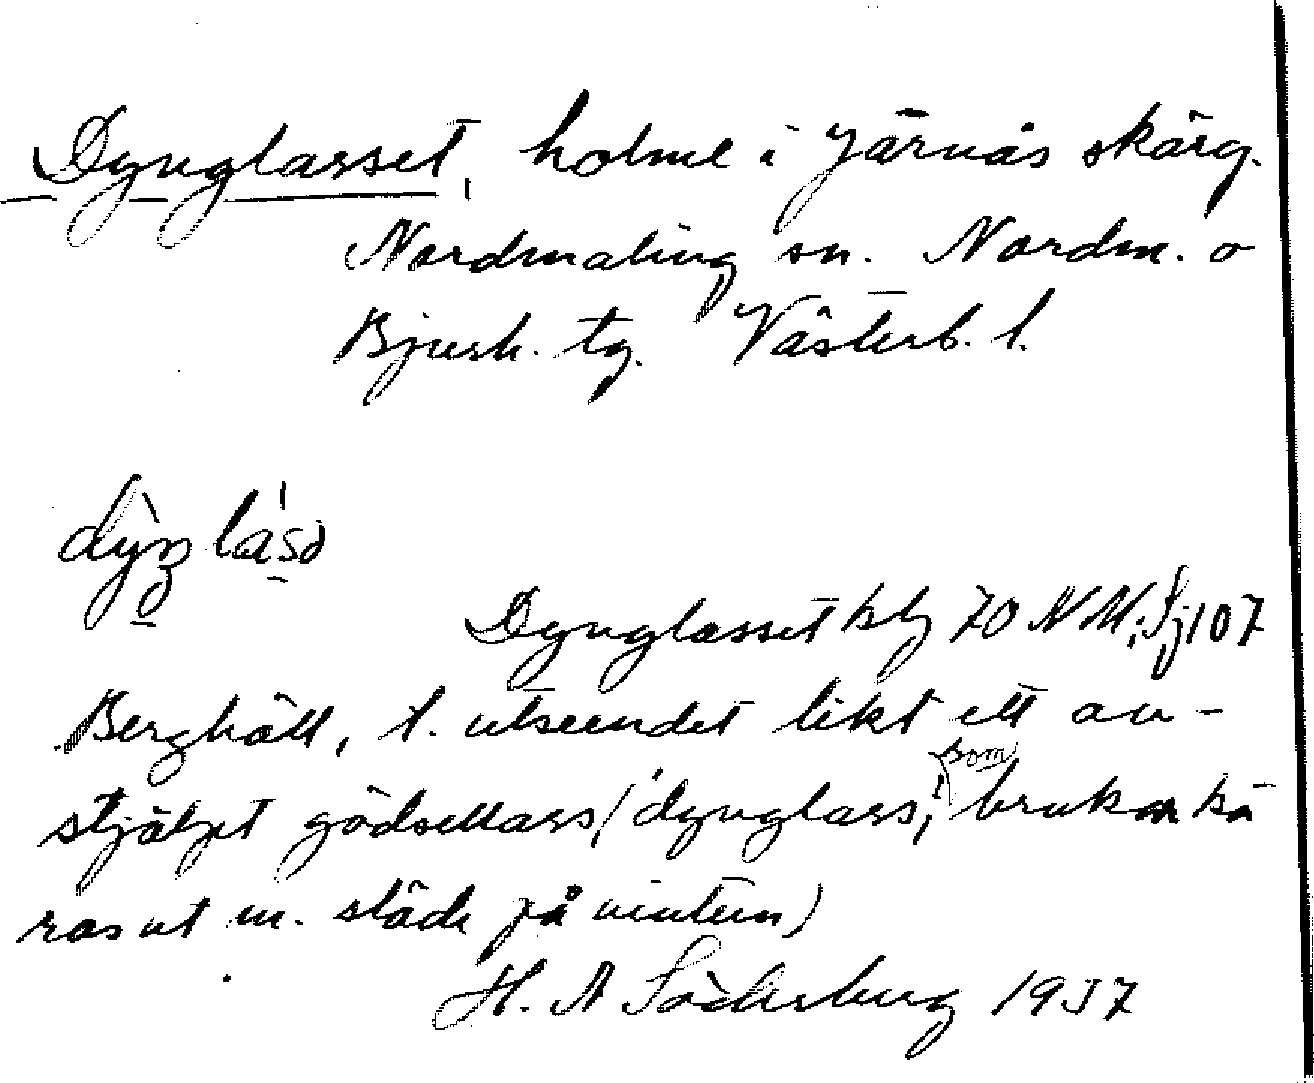 Dynglasset, holme i Järnäs skärg.
Nordmaling sn. Nordm. o
Bjurh. tg. Västerb. l.
Dynglasset blz 70 NM; Sj 107
Berghäll, t. utseendet likt ett av-
stjälpt gödsellass ("dynglass", som brukar kö
ras ut m. släde på vintern)
H. A Söderberg 1937